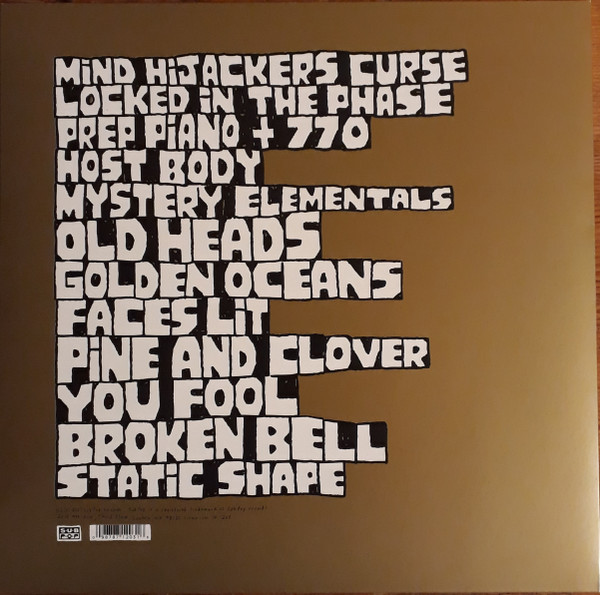 MiND HiJACKERS CURSE
LOCKED iN THE PHASE
PREP PiANO + 770
HOST BODY
MYSTERY ELEMENTALS
OLD HEADS
GOLDEN OCEANS
FACES LiT
PiNE AND CLOVER
YOU FOOL
BROKEN BELL
STATiC SHAPE
SUB
POP